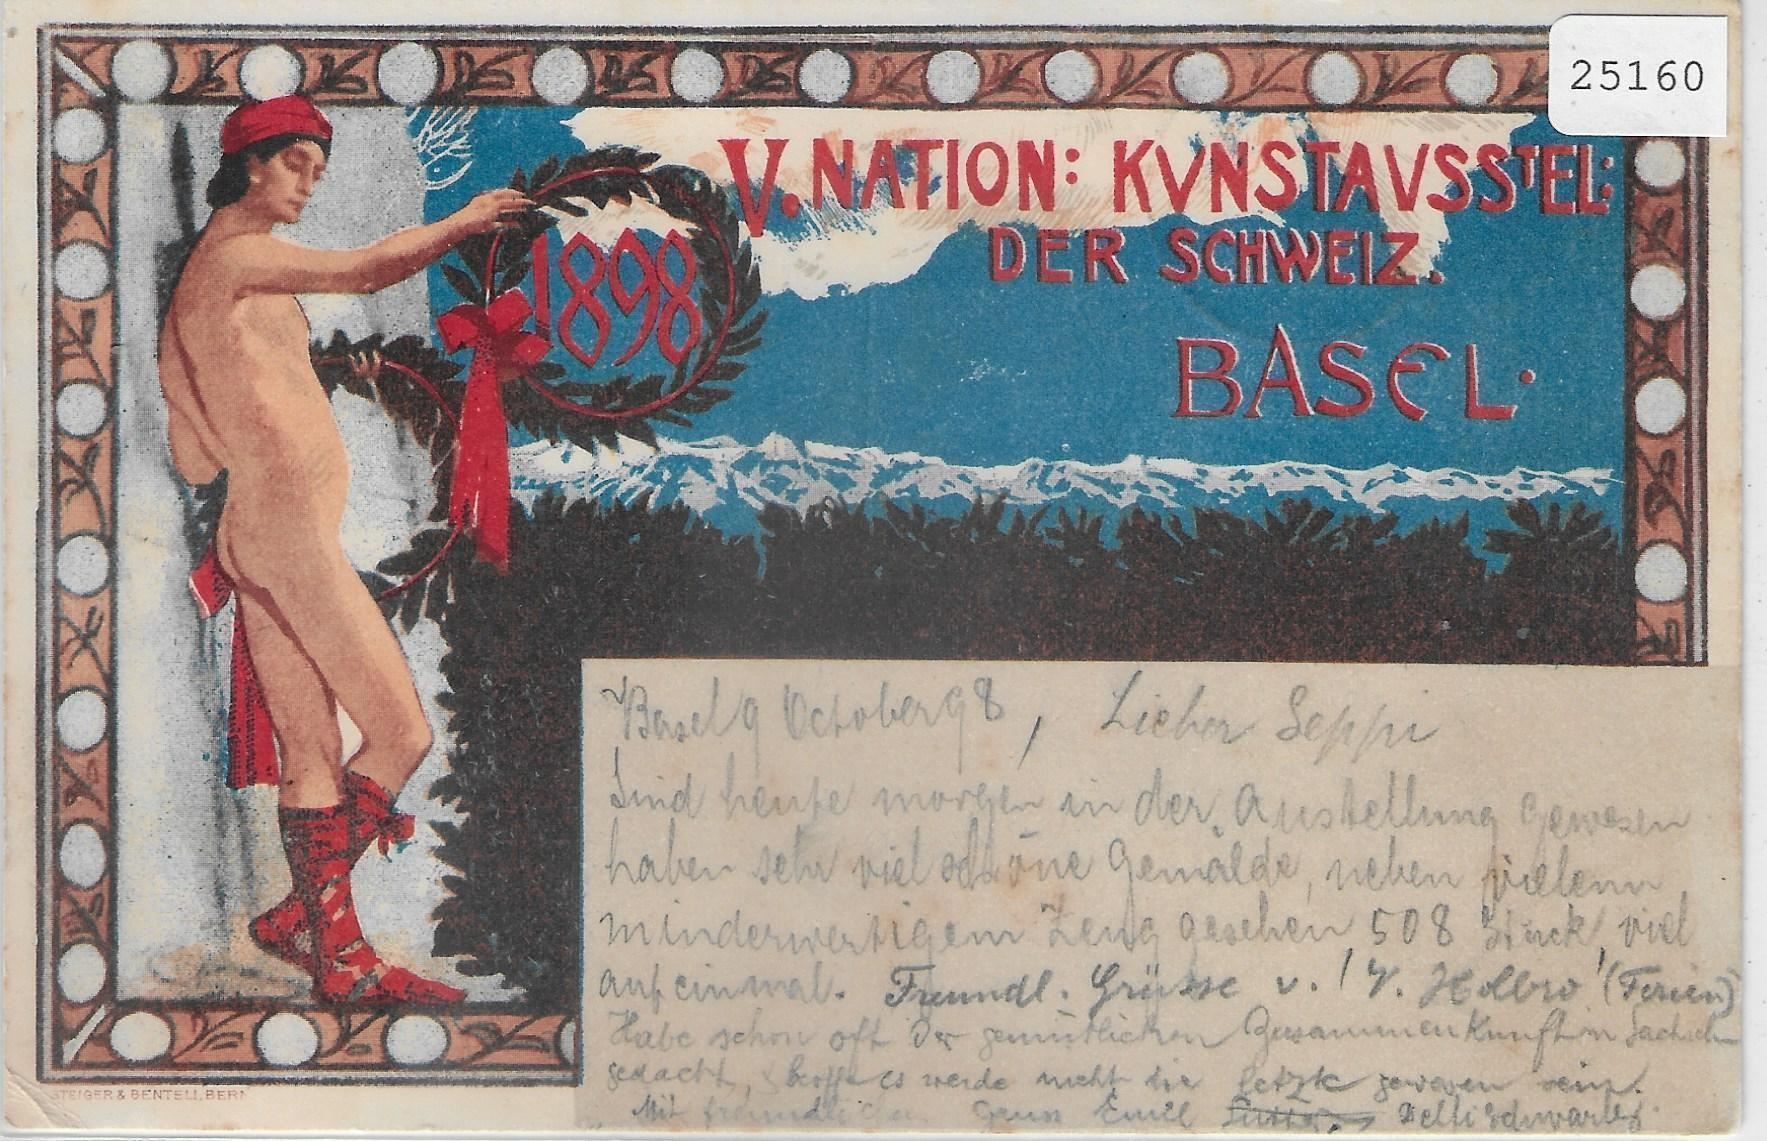 25160
V. NATION: KVNSTAVSSTEL:
DER SCHWEIZ.
1898
BASEL.
Basel 9 October 98, Lieber Seppi
Sind heute morgen in der Austellung gewesen
haben sehr viel schöne Gemälde, neben vielem
minderwertigem Zeug gesehen 508 Stück, viel
auf einmal. Freundl. Grüsse v. (Ferien)
Habe schon oft der gemütlichen Zusammenkunft in
gedacht, & hoffe es werde nicht die letzte gewesen sein.
Mit freundlichem Gruss Emil
STEIGER & BENTELI, BERN